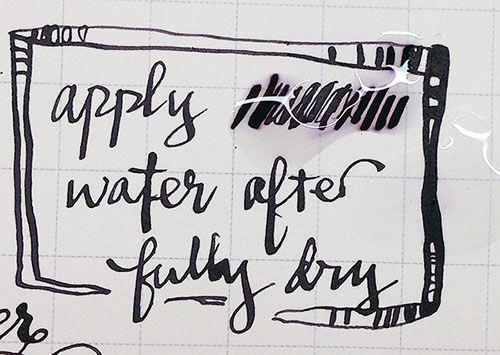 apply
water after
fully dry